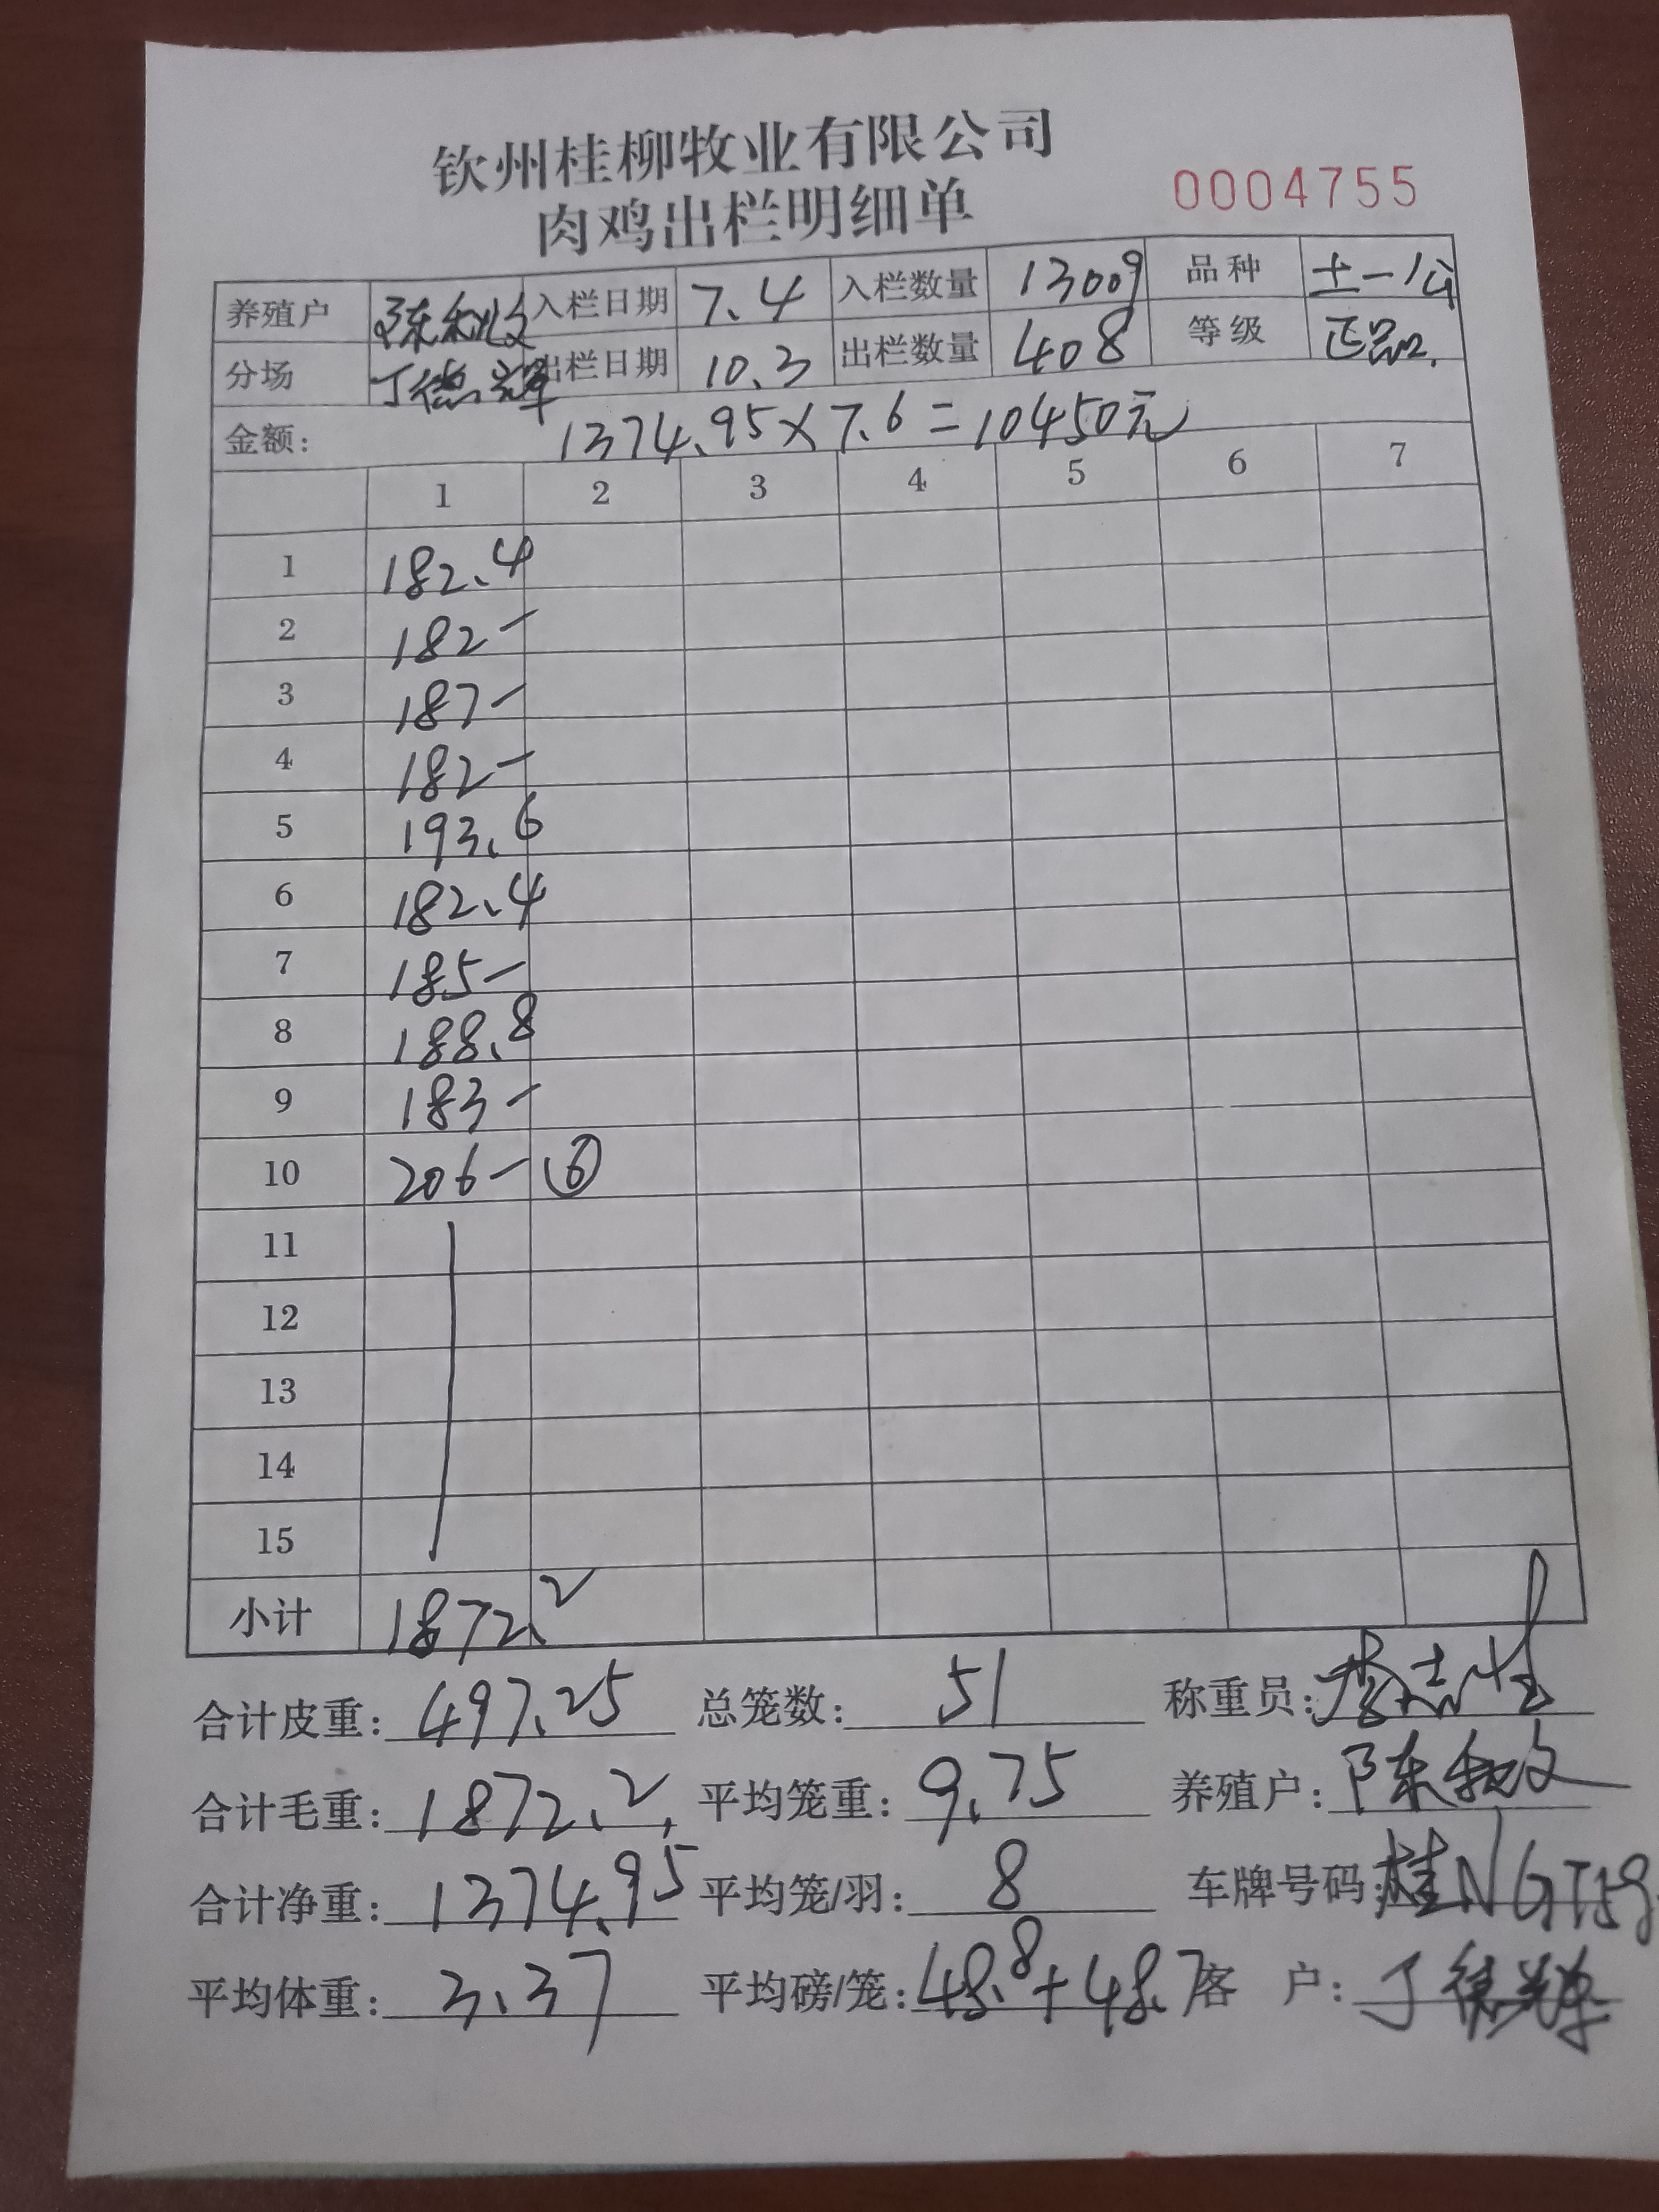 钦州桂柳牧业有限公司
肉鸡出栏明细单 0004755
养殖户 陈 入栏日期 7.4 入栏数量 13009 品种 土一公
分场 丁德辉 出栏日期 10.3 出栏数量 408 等级 正品
金额: 1374.95×7.6=10450元
1 2 3 4 5 6 7
1 182.4
2 182-
3 187-
4 182-
5 193.6
6 182.4
7 185-
8 188.8
9 183-
10 206- ⑥
11
12
13
14
15
小计 1872.2
合计皮重: 497.25 总笼数: 51 称重员:
合计毛重: 1872.2 平均笼重: 9.75 养殖户: 陈
合计净重: 1374.95 平均笼/羽: 8 车牌号码: 桂NGT59
平均体重: 3.37 平均磅/笼: 48.8+48.7 客 户: 丁德辉